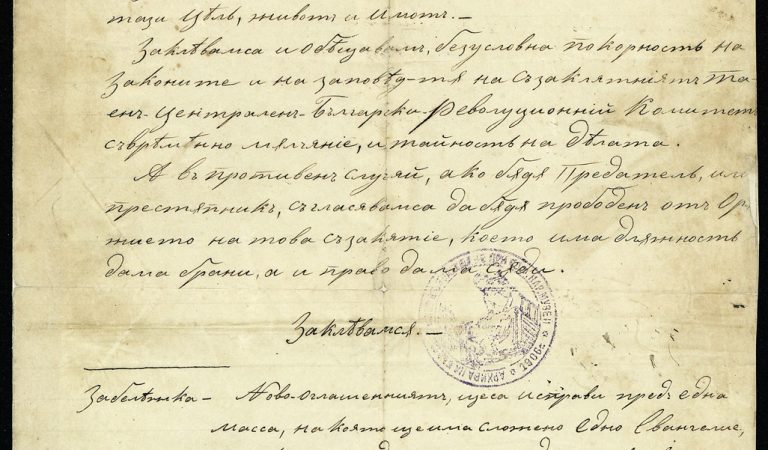 тази цѣль, животъ и имотъ.—
Заклѣвамса и обѣщавамъ, безусловна покорность на
Законите и на заповѣди-тя на съзаклятнiятъ Та-
енъ-Централенъ-Българско-Революционнiй Комитетъ
съврѣмѣнно мялчянiе, и тайность на дѣлата.
А въ противенъ случяй, ако бядя Предатель, или
престяпникъ, съгласявамса да бядя прободенъ отъ Ор-
жието на това съзакятiе, което има дляжность
дама брани, а и право дама сяди.
Заклѣвамся.—
Забелѣжка — Ново-оглашеннiятъ, щеса исправи предъ една
масса, на която ще има сложено едно Евангелие,